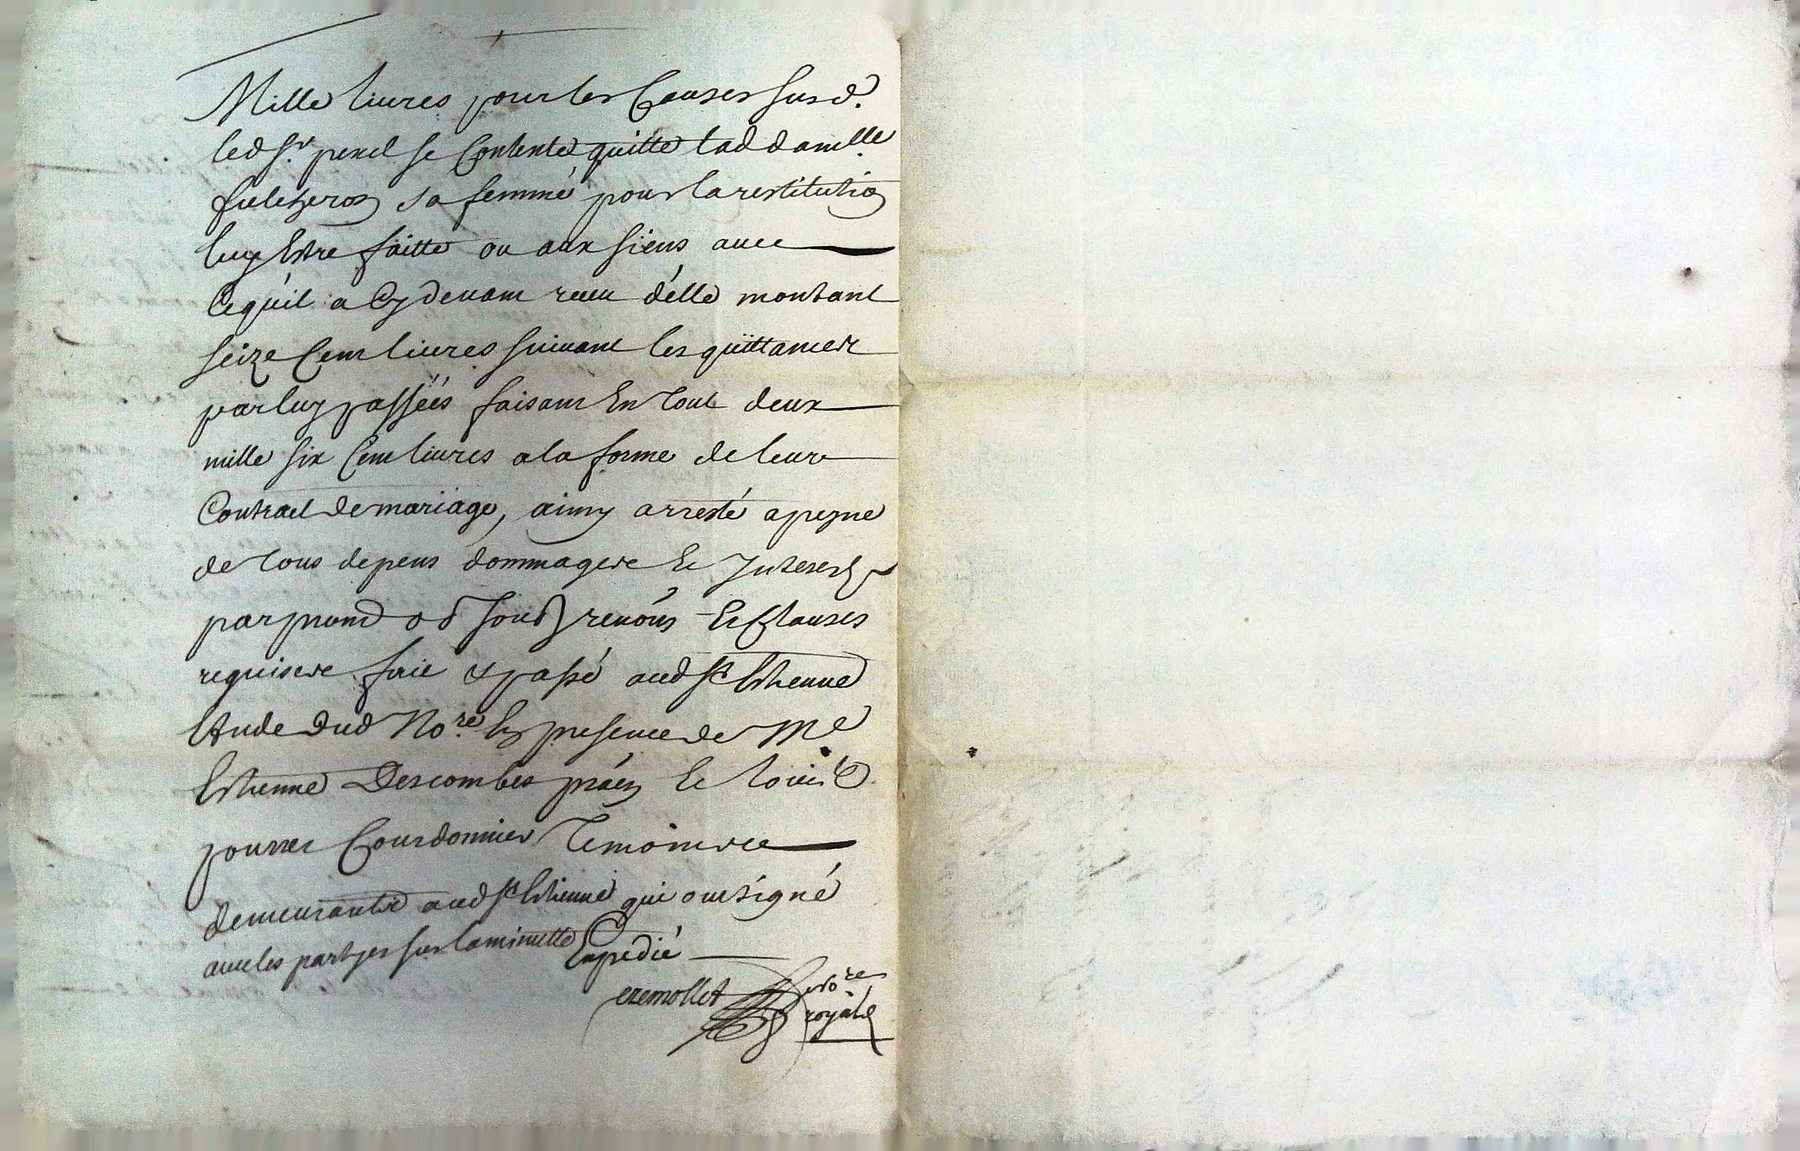 Mille livres pour les Causes susd.
led Sr. penel se Contente quitte lad damelle
sa femme pour la restitution
luy Estre faitte ou aux siens avec
Ce quil a Cy devant receu d'elle montant
seize Cent livres suivant les quittances
par luy passées faisant En tout deux
mille six Cent livres a la forme de leur
Contract de mariage, ainsy arresté a peyne
de tous depens dommages Et Interests
par prom obs soub renons Et Clauses
requises fait & passé aud St Estienne
Etude dud Nore. En presence de Me
Estienne Descombes praen Et
Courdonnier temoins
demeurants aud St Estienne qui ont signé
avec les partyes sur la minutte Expedié
eremollet Nore
royal